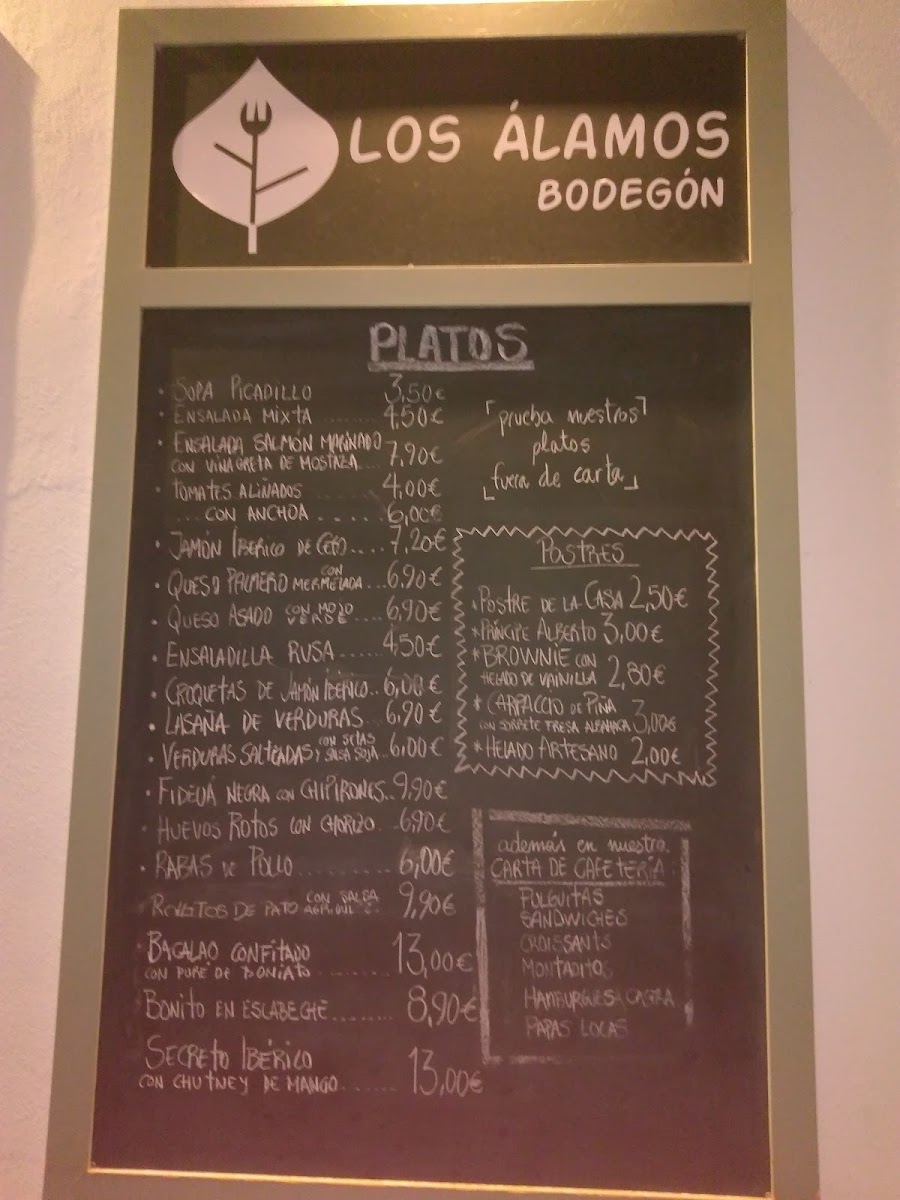 LOS ÁLAMOS
BODEGÓN
PLATOS
· SOPA PICADILLO 3,50€
· ENSALADA MIXTA ........ 4,50€
· ENSALADA SALMÓN MARINADO
CON VINAGRETA DE MOSTAZA... 7,90€
· TOMATES ALIÑADOS ........ 4,00€
.... CON ANCHOA ..... 6,00€
· JAMÓN IBERICO DE CEBO.... 7,20€
· QUESO PALMERO CON MERMELADA ... 6,90€
· QUESO ASADO CON MOJO VERDE ... 6,90€
· ENSALADILLA RUSA ..... 4,50€
· CROQUETAS DE JAMÓN IBÉRICO.. 6,00€
· LASAÑA DE VERDURAS... 6,90€
· VERDURAS SALTEADAS CON SETAS Y SALSA SOJA.. 6,00€
· FIDEUÁ NEGRA CON CHIPIRONES.. 9,90€
· HUEVOS ROTOS CON CHORIZO... 6,90€
· RABAS DE POLLO .......... 6,00€
ROLLITOS DE PATO CON SALSA 9,90€
· BACALAO CONFITADO
CON PURÉ DE BONIATO .......... 13,00€
BONITO EN ESCABECHE........ 8,90€
SECRETO IBÉRICO
CON CHUTNEY DE MANGO....... 13,00€
prueba nuestros
platos
fuera de carta
POSTRES
· POSTRE DE LA CASA 2,50€
* PRÍNCIPE ALBERTO 3,00€
* BROWNIE CON
HELADO DE VAINILLA 2,80€
* CARPACCIO DE PIÑA
CON SORBETE FRESA 3,00€
* HELADO ARTESANO 2,00€
además en nuestra
CARTA DE CAFETERÍA
PULGUITAS
SANDWICHES
CROISSANTS
MONTADITOS
HAMBURGUESA CASERA
PAPAS LOCAS